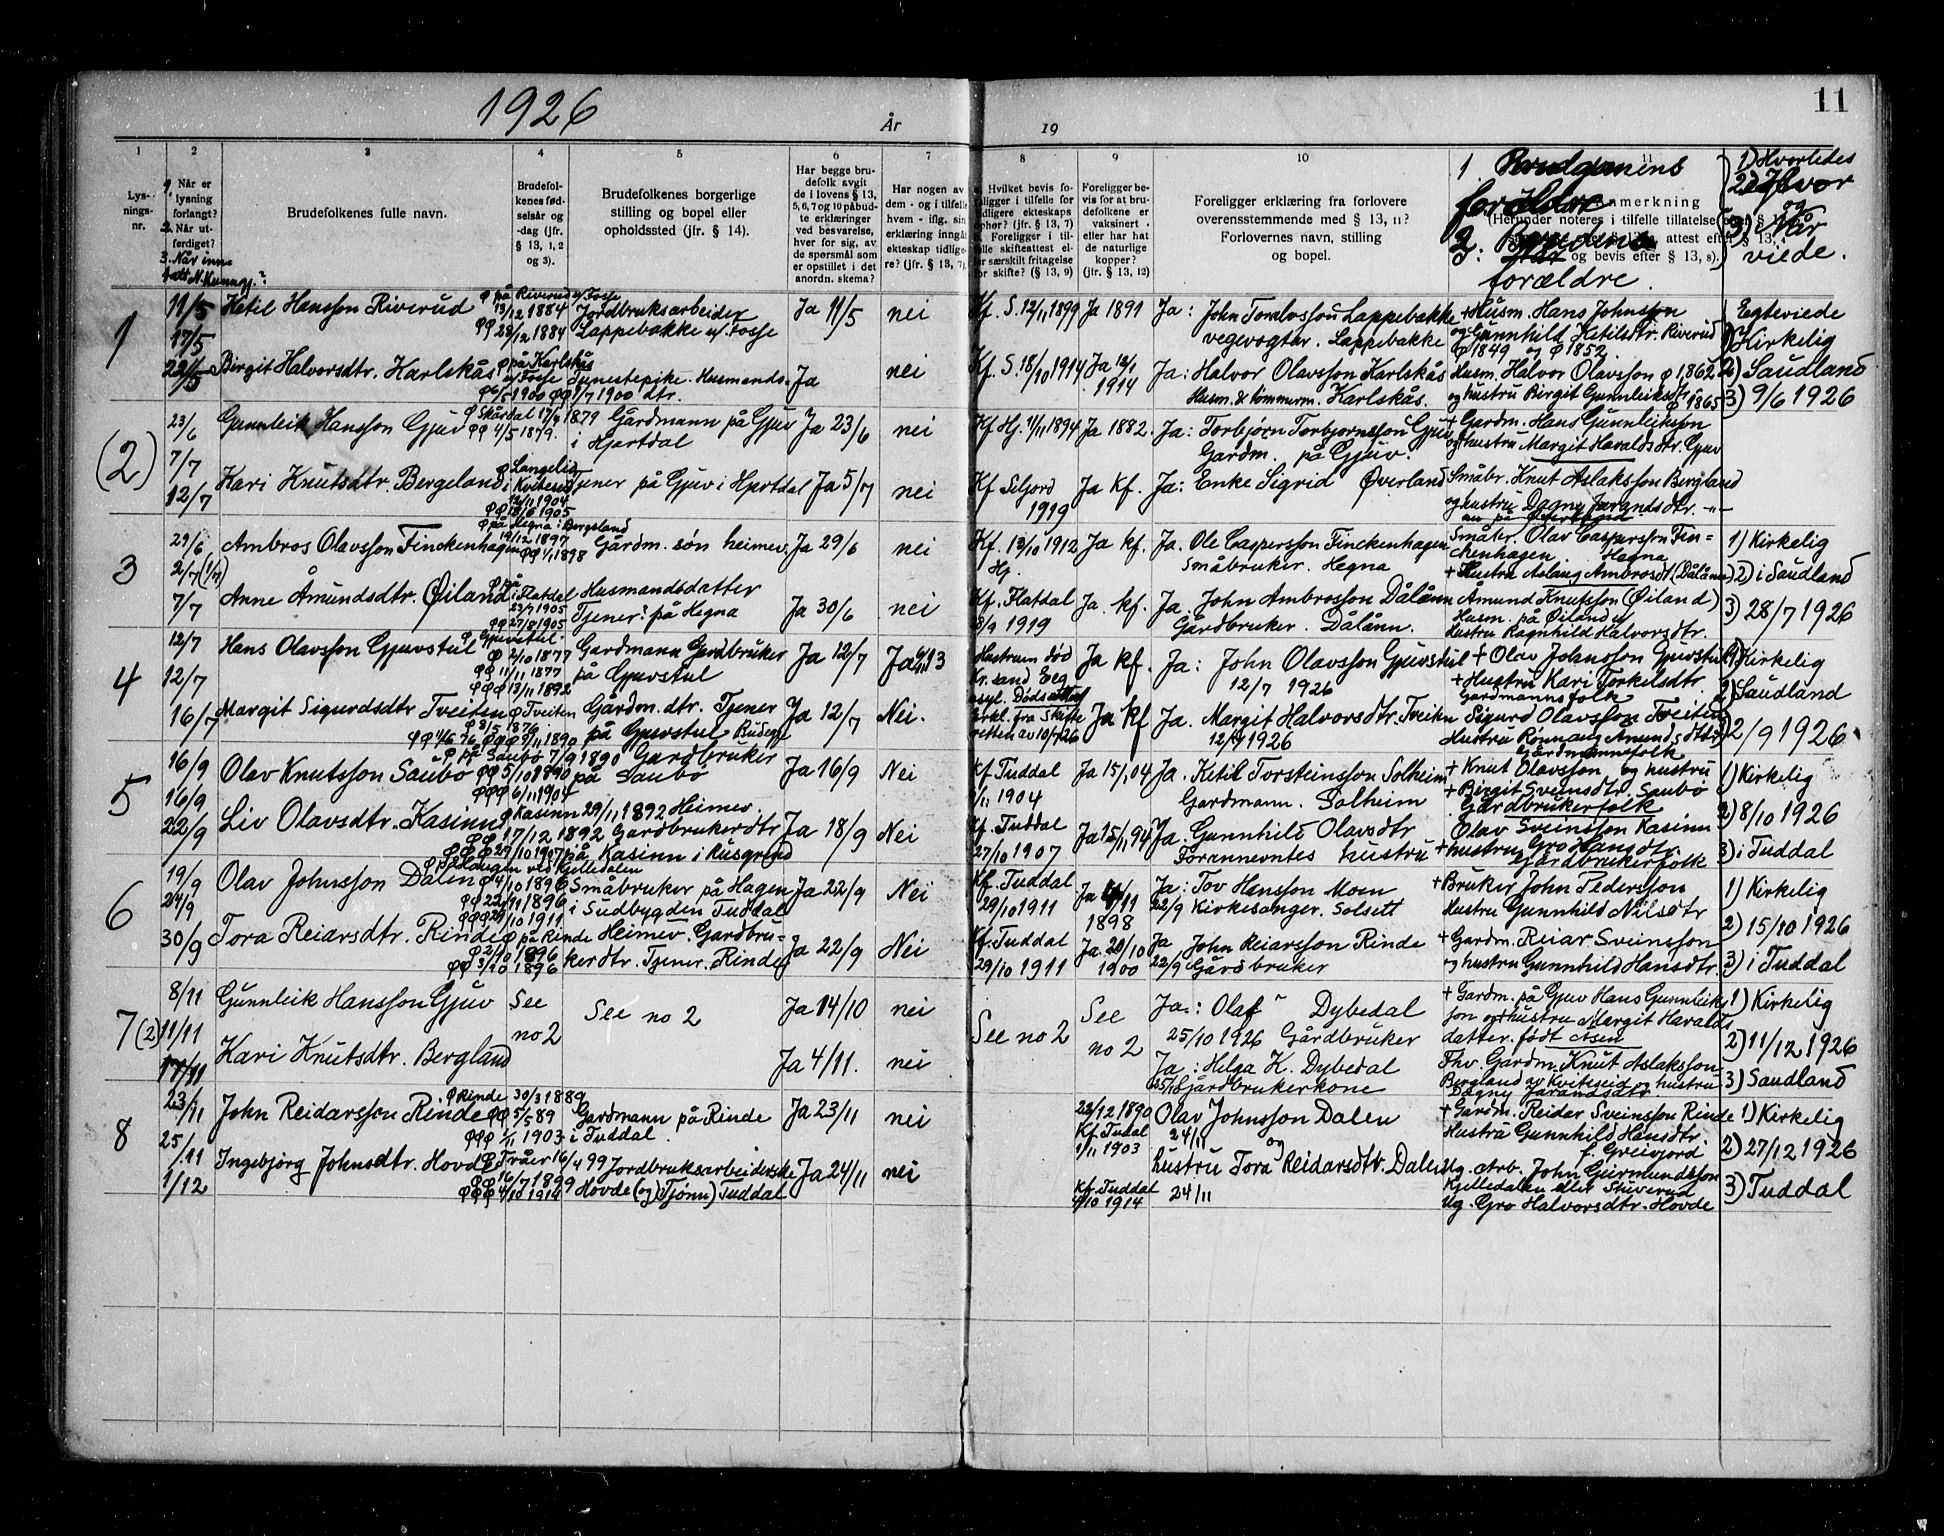 1926
År
19
11
1
2
3
4
5
6
7
8
9
10
11
Lys-
nings-
nr.
1. Når er
lysning
forlangt?
2. Når ut-
ferdiget?
3. Når inn-
Brudefolkenes fulle navn.
Brudefol-
kenes fød-
selsår og
-dag (jfr.
§ 13, 1, 2
og 3).
Brudefolkenes borgerlige
stilling og bopel eller
opholdssted (jfr. § 14).
Har begge bru-
defolk avgit
de i lovens § 13,
5, 6, 7 og 10 påbud-
te erklæringer
ved besvarelse,
hver for sig, av
de spørsmål som
er opstillet i det
anordn. skema?
Har nogen av
dem - og i tilfelle
hvem - iflg. sin
erklæring inngått
ekteskap tidlige-
re? (jfr. § 13, 7).
Hvilket bevis fo-
religger i tilfelle for
tidligere ekteskaps
ophør? (jfr. § 13, 7)
Foreligger i til-
felle skifteattest el-
ler særskilt fritagelse
for skifte? (§ 13, 9)
Foreligger be-
vis for at brud-
defolkene er
vaksinert
eller har hat
de naturlige
kopper?
(jfr. § 13, 12)
Foreligger erklæring fra forlovere
overensstemmende med § 13, 11?
Forlovernes navn, stilling
og bopel.
1. Brudgomens
forældre
2. Brudens
forældre.
1) Hvorledes
2) Hvor
og
3) Når
viede.
1
11/5
17/5
22/5
Ketil Hansson Riverud
φ på Riverud u/ Fosse
13/12 1884
φφ 28/12 1884
Jordbruksarbeider
Lappebakke u/. Fosse
Ja 11/5
nei
Kf. S. 12/11 1899
Ja 1891
Ja: John Tovslovsson Lappebakke
vegevogter. Lappebakke
+ Husm. Hans Johnsson
og Gunnhild Ketilsdtr. Riverud
φ 1849 og φ 1852.
Egteviede
1) Kirkelig
2) Saudland
3) 9/6 1926
Birgit Halvorsdtr. Karlskås
φ på Karlskås
u/ Fosse
φ 6/5 1900 φφ 1/7 1900
Tjenestepike. Husmands-
dtr.
Ja
nei
Kf. S. 18/10 1914
Ja 12/1
1914
Ja: Halvor Olavsson Karlskås
Husm. & tømmerm. Karlskås.
Husm. Halvor Olavsson φ 1862
og hustru Birgit Gunnleiksdtr.
φ 1865
(2)
23/6
7/7
12/7
Gunnleik Hansson Gjuv
φ Skårdal 17/4 1879
φφ 4/5 1879.
Gårdmann på Gjuv
i Hjartdal
Ja 23/6
nei
Kf Hj. 4/11 1894
Ja 1882.
Ja: Torbjørn Torbjornsson Gjuv
Gardm. på Gjuv.
+ Gardm. Hans Gunnleikson
og hustru Margit Haraldsdtr. Gjuv
Kari Knutsdtr. Bergeland
φ Langelid
i Kviteseid
12/11 1904
φφ 13/6 1905
Tjener på Gjuv i Hjartdal
Ja 5/7
nei
Kf Seljord
1919
Ja kf.
Ja: Enke Sigrid Øverland
Småbr. Knut Aslaksson Bergland
og hustru Dagny Jarandsdtr. -"-
3
29/6
2/7 (1/7)
7/7
Ambros Olavsson Finckenhagen
φ på Hegna i Bergsland
19/12 1897
φφ 1/1 1898
Gårdm. søn heimev.
Ja 29/6
nei
Kf. 13/10 1912
Hj.
Ja kf.
Ja. Ole Caspersson Finckenhagen
Småbruker. Hegna
Småbr. Olav Caspersson Fin-
chenhagen Hegna
+ Hustru Aslaug Ambrosdt. (Dålånn)
1) Kirkelig
2) i Saudland
3) 28/7 1926
Anne Åmundsdtr. Øiland
φ på
i Flatdal
23/7 1905
φφ 27/8 1905
Husmandsdatter
Tjener: på Hegna
Ja 30/6
nei
Kf. Flatdal
8/9 1919
Ja. kf.
Ja. John Ambrosson Dålånn
Gårdbruker. Dålånn.
Åmund Knutsson (Øiland)
Husm. på Øiland u/
Hustru Ragnhild Halvorsdtr.
4
12/7
12/7
16/7
Hans Olavsson Gjuvstul
φ Gjuvstul.
φ 2/10 1877
φφ 11/11 1877
φφφ 13/11 1892
Gardmann Gardbruker
på Gjuvstul
Ja 12/7
Ja 6/11 13
Hustruen død
Kr.sand Eeg
asyl. Dødsattest
erkl. fra Skifte
retten av 10/7 26
Ja kf.
Ja: John Olavsson Gjuvstul
12/7 1926
+ Olav Johansson Gjuvstul
+ Hustru Kari Torkelsdtr.
Gardmannsfolk
1) Kirkelig
2) Saudland
3) 2/9 1926
Margit Sigurdsdtr Tveiten
φ Tveiten
φφφ 9/11 1890
Gårdm. dtr. Tjener
på Gjuvstul Budegje
Ja 12/7
Nei.
Ja kf
Ja. Margit Halvorsdtr. Tveiten
12/7 1926
Sigurd Olavsson Tveiten
Hustru Rønnaug Amundsdtr.
Gårdmannsfolk
5
16/9
16/9
22/9
Olav Knutsson Saubø
φ på Saubø 7/9 1890
φφ 5/10 1890
φφφ 6/11 1904
Gardbruker
på Saubø
Ja 16/9
Nei
Kf Tuddal
1904
Ja 15/1 04
Ja. Ketil Torsteinsson Solheim
Gardmann. Solheim
+ Knut Olavsson og hustru
+ Birgit Sveinsdtr. Saubø
Gårdbrukerfolk
1) Kirkelig
2) 8/10 1926
3) i Tuddal
Liv Olavsdtr. Kasinn
φ Kasinn 29/11 1892
φφ 17/12 1892
φφφ 29/10 1907
Heimev.
Gardbrukerdtr
på Kasinn i Rusgrend
Ja 18/9
Nei
Kf. Tuddal
27/10 1907
Ja 15/11 94
Ja. Gunnhild Olavsdtr
Forannevntes hustru
Olav Sveinsson Kasinn
+ hustru Gro Hansdtr.
Gårdbrukerfolk
6
19/9
24/9
30/9
Olav Johnsson Dalen
φ på Haugen ved Kjelledalen
φ 4/10 1896
φφ 22/11 1896
φφφ 29/10 1911
Småbruker på Hagen
i Sudbygden Tuddal
Ja 22/9
Nei
Kf. Tuddal
29/10 1911
Ja 4/11
1898
Ja: Tov Hansson Moen
22/9 Kirkesanger. Solsett
+ Bruker John Pedersson
Hustru Gunnhild Nilsdtr
1) Kirkelig
2) 15/10 1926
3) i Tuddal
Tora Reiarsdtr. Rinde
φ på Rinde
φ 2/10 1896
φφ 3/10 1896
Heimev. Gardbru-
kerdtr. Tjener. Rinde
Ja 22/9
Nei
Kf. Tuddal
29/10 1911
Ja. 20/10
1900
Ja John Reiarsson Rinde
22/9 Gårdbruker
+ Gardm. Reiar Sveinsson
og hustru Gunnhild Hansdtr.
7 (2)
8/11
11/11
17/11
Gunnleik Hansson Gjuv
See
no 2
See no 2
Ja 14/10
nei
See no 2
See
no 2
Ja.: Olaf Dybedal
25/10 1926 Gårdbruker
+ Gardm. på Gjuv Hans Gunnleiks
son og hustru Margit Haralds
datter. født Åsen
1) Kirkelig
2) 11/12 1926
3) Saudland
Kari Knutsdtr. Bergland
Ja 4/11.
nei
Ja: Helga K. Dybedal
Gårdbrukerkone
Fhv. Gardm. Knut Aslaksson
Bergland av Kviteseid og hustru
Dagny Jarandsdtr.
8
23/11
25/11
1/12
John Reidarsson Rinde
φ Rinde 30/3 1889
φφ 5/5 89
φφφ 1/11 1903
Gardmann på Rinde
i Tuddal.
Ja 23/11
nei
Kf. Tudal
1/11 1903
28/12 1890
Olav Johnsson Dalen
24/11
og
+ Gardm. Reider Sveinsson Rinde
Hustru Gunnhild Hansdtr.
f. Greivjord
1) Kirkelig
2) 27/12 1926
3) Tuddal
Ingebjørg Johnsdtr. Hovde
φ Tvåer 16/4 99
φφ 16/7 1899
φφφ 4/10 1914
Jordbruksarbeiderske
Hovde (og Tjønn) Tuddal
Ja 24/11
nei
Kf. Tuddal
4/10 1914
hustru Tora Reidarsdtr. Dalen
24/11
Ug. Arb. John Guermundsson
Kjelledalen eller Stiverud
Ug. Gro Halvorsdtr. Hovde